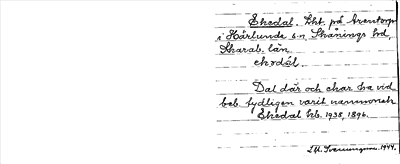 Ekedal. Lht. på Arentorp
i Härlunda s:n, Skånings hd,
Skarab. län.
ekədāl.
Dal där och ekar ha vid
beb. tydligen varit namnorsak
Ekedal hb. 1938, 1896.
1944.